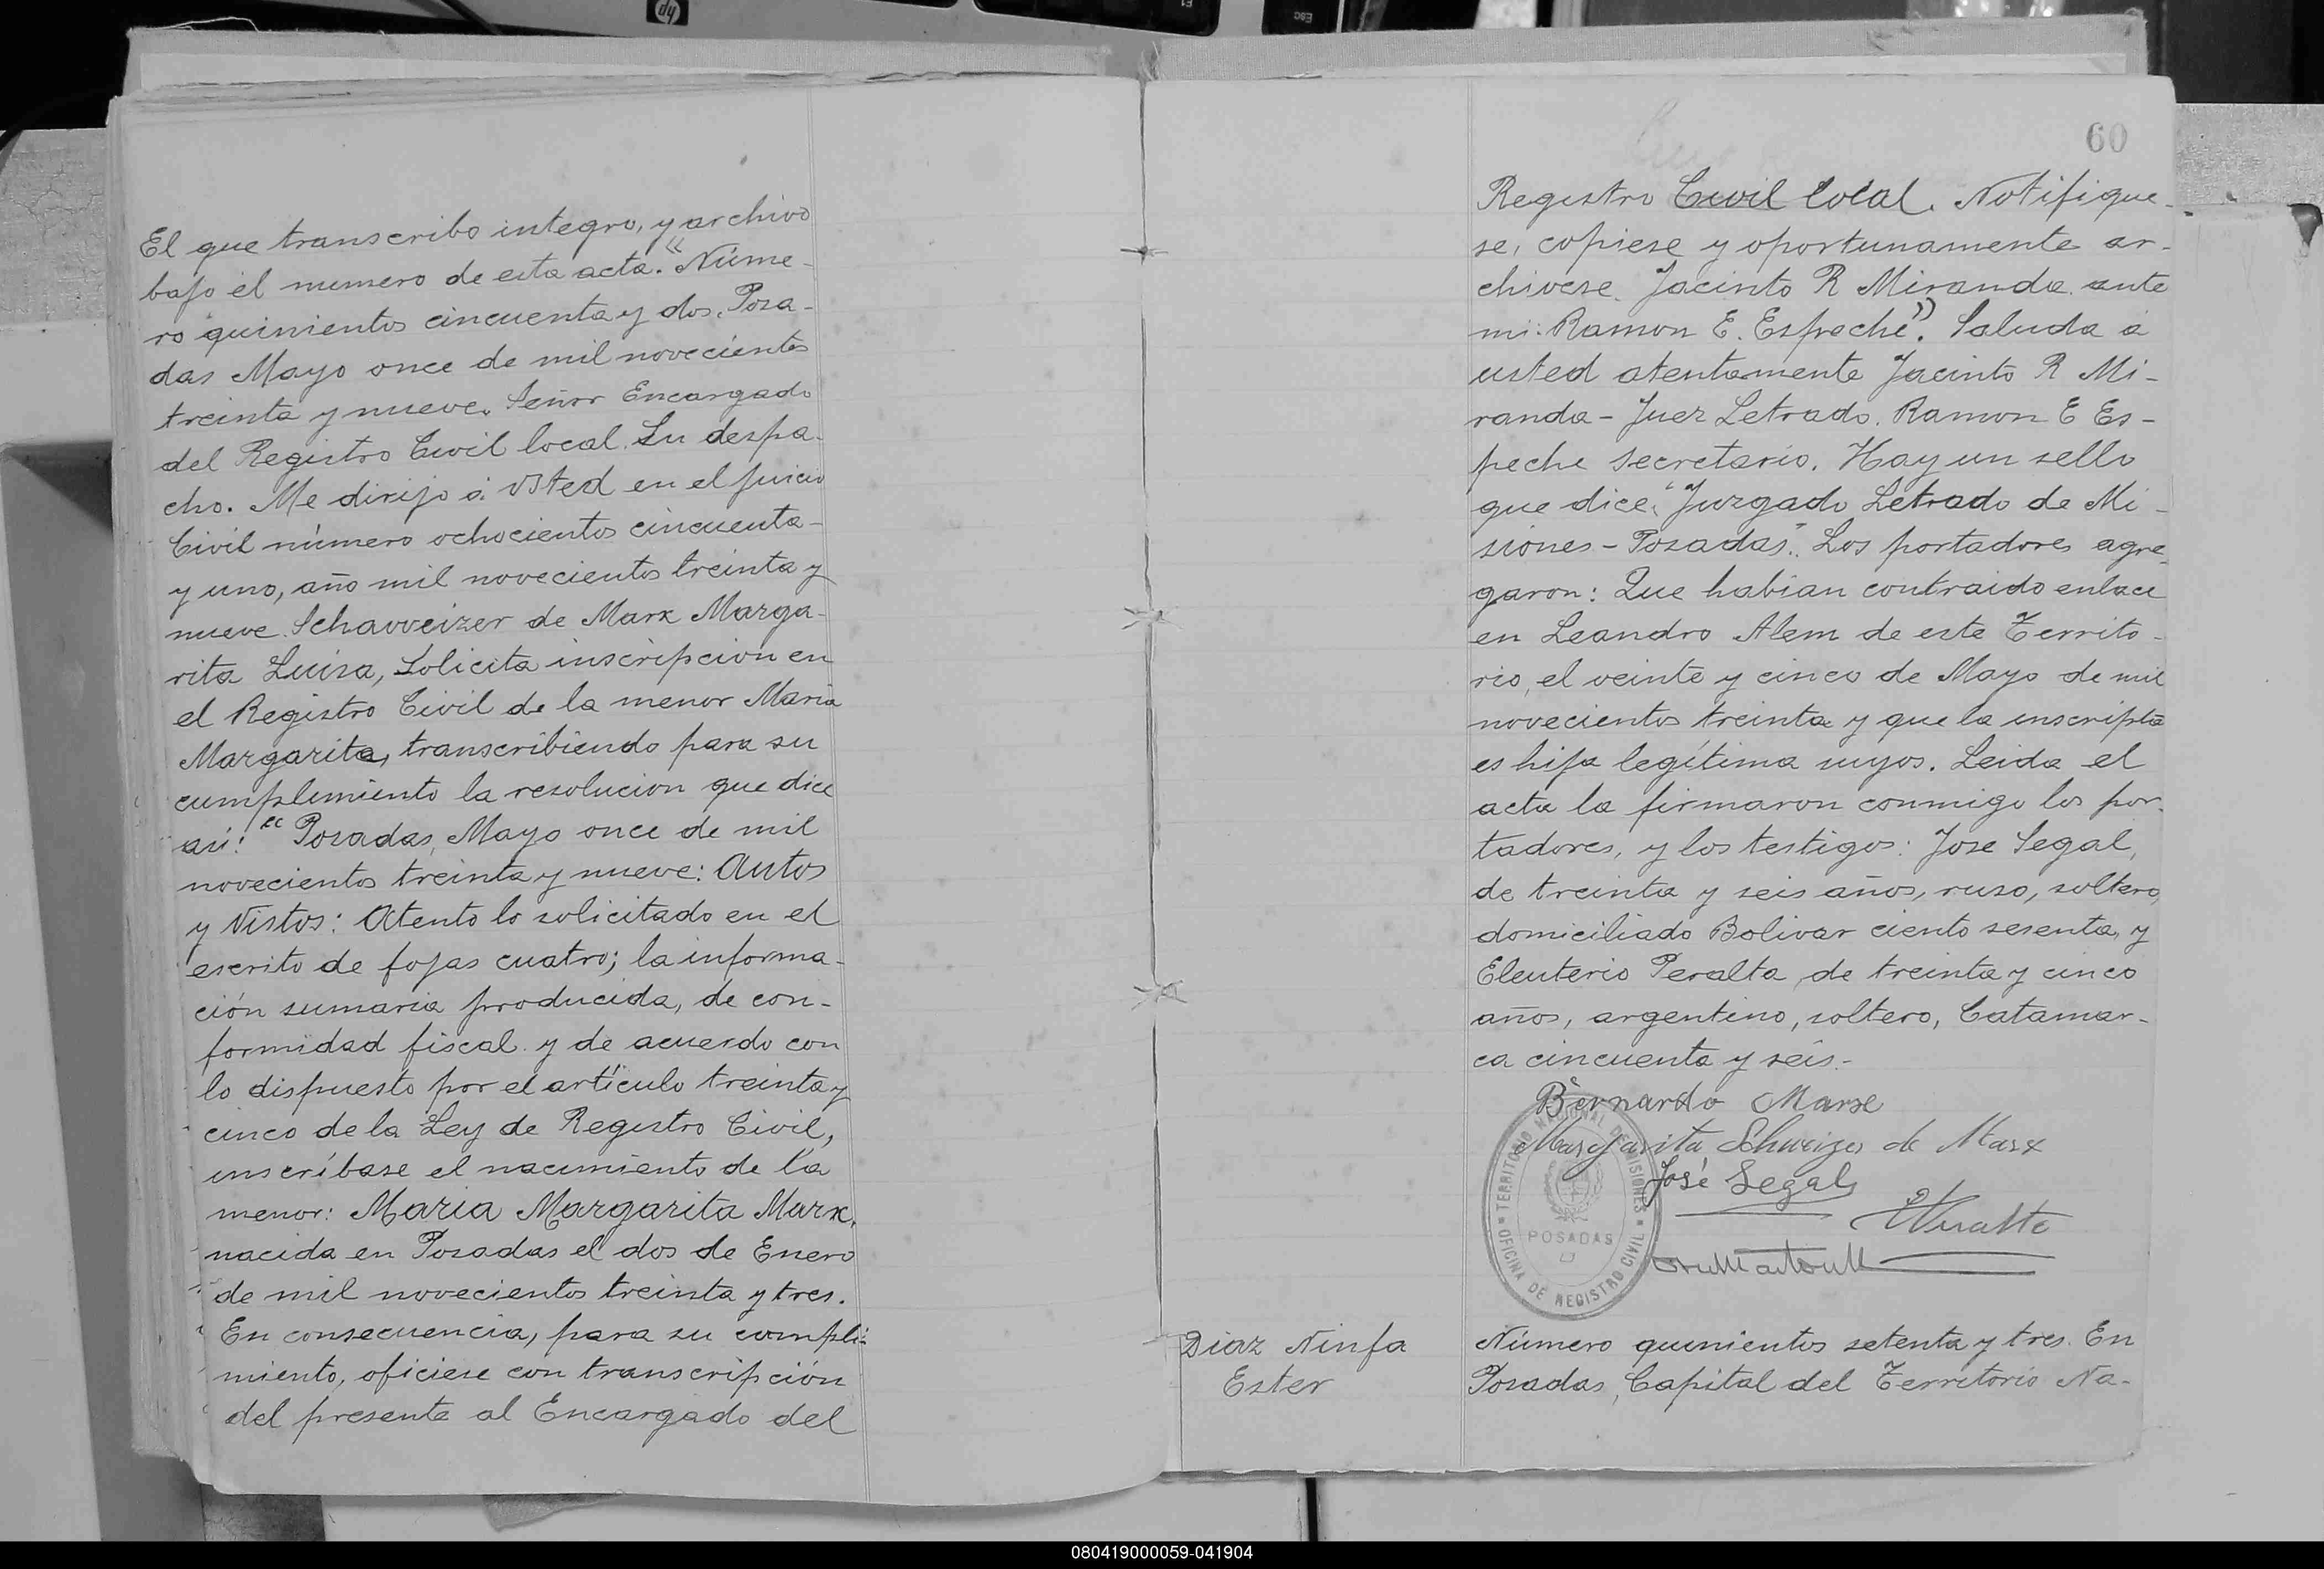 El que transcribo integro, y archivo
bajo el numero de esta acta. "Núme-
ro quinientos cincuenta y dos. Posa-
das Mayo once de mil novecientos
treinta y nueve. Señor Encargado
del Registro Civil local. Su despa-
cho. Me dirijo á Usted en el juicio
Civil número ochocientos cincuenta
y uno, año mil novecientos treinta y
nueve. Schavveizer de Marx Marga-
rita Luisa, Solicita inscripcion en
el Registro Civil de la menor Maria
Margarita, transcribiendo para su
cumplimiento la resolucion que dice
asi: "Posadas, Mayo once de mil
novecientos treinta y nueve: Autos
y Vistos: Atento lo solicitado en el
escrito de fojas cuatro; la informa-
ción sumaria producida, de con-
formidad fiscal y de acuerdo con
lo dispuesto por el artículo treinta y
cinco de la Ley de Registro Civil,
inscríbase el nacimiento de la
menor: Maria Margarita Marx,
nacida en Posadas el dos de Enero
de mil novecientos treinta y tres.
En consecuencia, para su cumpli-
miento, oficiese con transcripción
del presente al Encargado del
60
Registro Civil local. Notifique-
se, copiese y oportunamente ar-
chivese. Jacinto R Miranda. ante
mi: Ramon E. Espeche". Saluda á
usted atentamente Jacinto R Mi-
randa - Juez Letrado. Ramon E Es-
peche secretario. Hay un sello
que dice: "Juzgado Letrado de Mi-
siones - Posadas". Los portadores agre-
garon: Que habian contraido enlace
en Leandro Alem de este Territo-
rio, el veinte y cinco de Mayo de mil
novecientos treinta y que la inscripta
es hija legítima suyos. Leida el
acta la firmaron conmigo los por-
tadores, y los testigos: Jose Segal,
de treinta y seis años, ruso, soltero,
domiciliado Bolivar ciento sesenta, y
Eleuterio Peralta, de treinta y cinco
años, argentino, soltero, Catamar-
ca cincuenta y seis.-
Bernardo Marx
Margarita Schweizer de Marx
José Segal
TERRITORIO NACIONAL DE MISIONES
POSADAS
OFICINA DE REGISTRO CIVIL
Diaz Ninfa
Ester
Número quinientos setenta y tres. En
Posadas, Capital del Territorio Na-
080419000059-041904